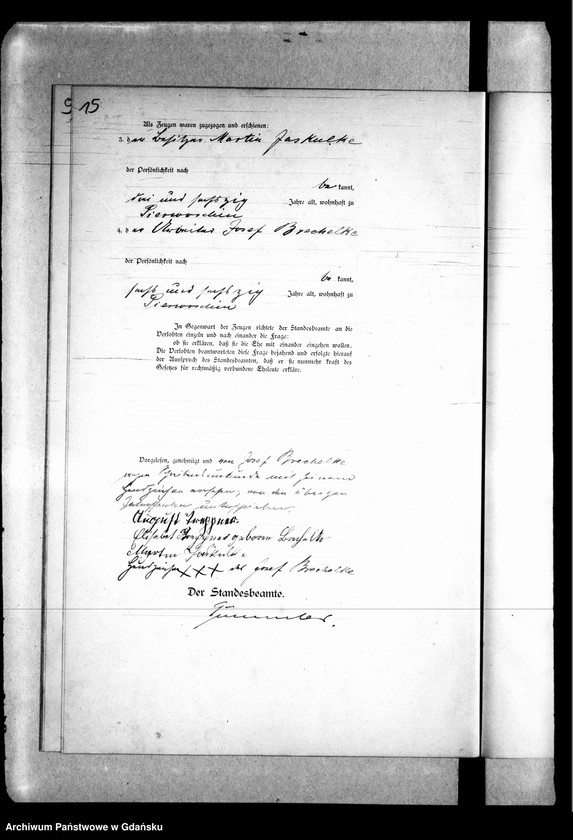 915
Als Zeugen waren zugezogen und erschienen:
3. der Besitzer Martin Jaskulke
der Persönlichkeit nach
be kannt,
drei und sechszig Jahre alt, wohnhaft zu
Pierwoschin
4. der Arbeiter Josef Brechelke
der Persönlichkeit nach
be kannt,
sechs und sechszig Jahre alt, wohnhaft zu
Pierwoschin
In Gegenwart der Zeugen richtete der Standesbeamte an die
Verlobten einzeln und nach einander die Frage:
ob sie erklären, daß sie die Ehe mit einander eingehen wollen.
Die Verlobten beantworteten diese Frage bejahend und erfolgte hierauf
der Ausspruch des Standesbeamten, daß er sie nunmehr kraft des
Gesetzes für rechtmäßig verbundene Eheleute erkläre.
Vorgelesen, genehmigt und von Josef Brechelke
wegen Schreibensunkunde mit seinem
Handzeichen versehen, von den übrigen
unterschrieben.
August
Elisabet geborene
Martin Jaskulke
Handzeichen XXX des Josef Brechelke
Der Standesbeamte.
Archiwum Państwowe w Gdańsku